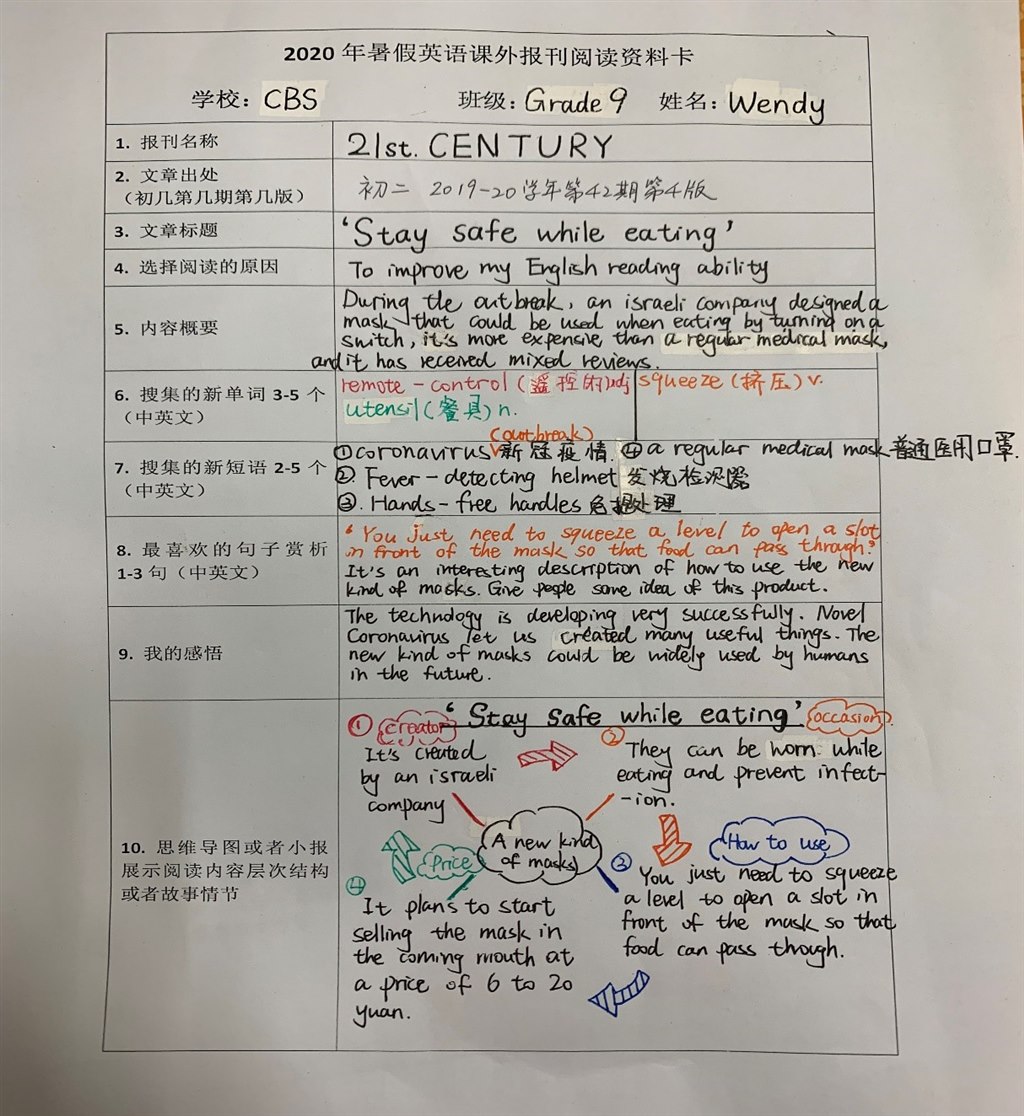 2020 年暑假英语课外报刊阅读资料卡
学校：CBS 班级：Grade 9 姓名：Wendy
1. 报刊名称
21st. CENTURY
2. 文章出处
（初几第几期第几版）
初二 2019-20学年第42期第4版
3. 文章标题
‘Stay safe while eating’
4. 选择阅读的原因
To improve my English reading ability
5. 内容概要
During the outbreak, an israeli company designed a
mask that could be used when eating by turning on a
switch, it's more expensive than a regular medical mask,
and it has received mixed reviews.
6. 搜集的新单词 3-5 个
（中英文）
remote-control (遥控的)adj squeeze (挤压) v.
utensil (餐具) n.
7. 搜集的新短语 2-5 个
（中英文）
(outbreak)
①coronavirus 新冠疫情. ④a regular medical mask普通医用口罩.
②. Fever-detecting helmet 发烧检测器
③. Hands-free handles 免提处理
8. 最喜欢的句子赏析
1-3 句（中英文）
‘You just need to squeeze a level to open a slot
in front of the mask so that food can pass through.’
It's an interesting description of how to use the new
kind of masks. Give people some idea of this product.
9. 我的感悟
The technology is developing very successfully. Novel
Coronavirus let us created many useful things. The
new kind of masks could be widely used by humans
in the future.
10. 思维导图或者小报
展示阅读内容层次结构
或者故事情节
‘Stay safe while eating’
① creator
It's created
by an israeli
company
② occasion.
They can be worn while
eating and prevent infect-
-ion.
A new kind
of masks
③ How to use
You just need to squeeze
a level to open a slot in
front of the mask so that
food can pass though.
④ Price
It plans to start
selling the mask in
the coming mouth at
a price of 6 to 20
yuan.